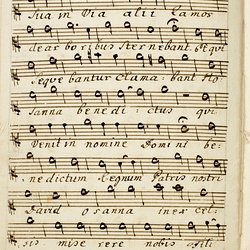 Sua in Via alii Ramos
de ar bo ribus Ster nebant et qui
Seque bantur Clama bant Ho
Sanna bene di ctus qui
Venit in nomine Domini be
ne dictum Regnum Patris nostri
David O sanna in ex cel
sis mise rere nobis Fili